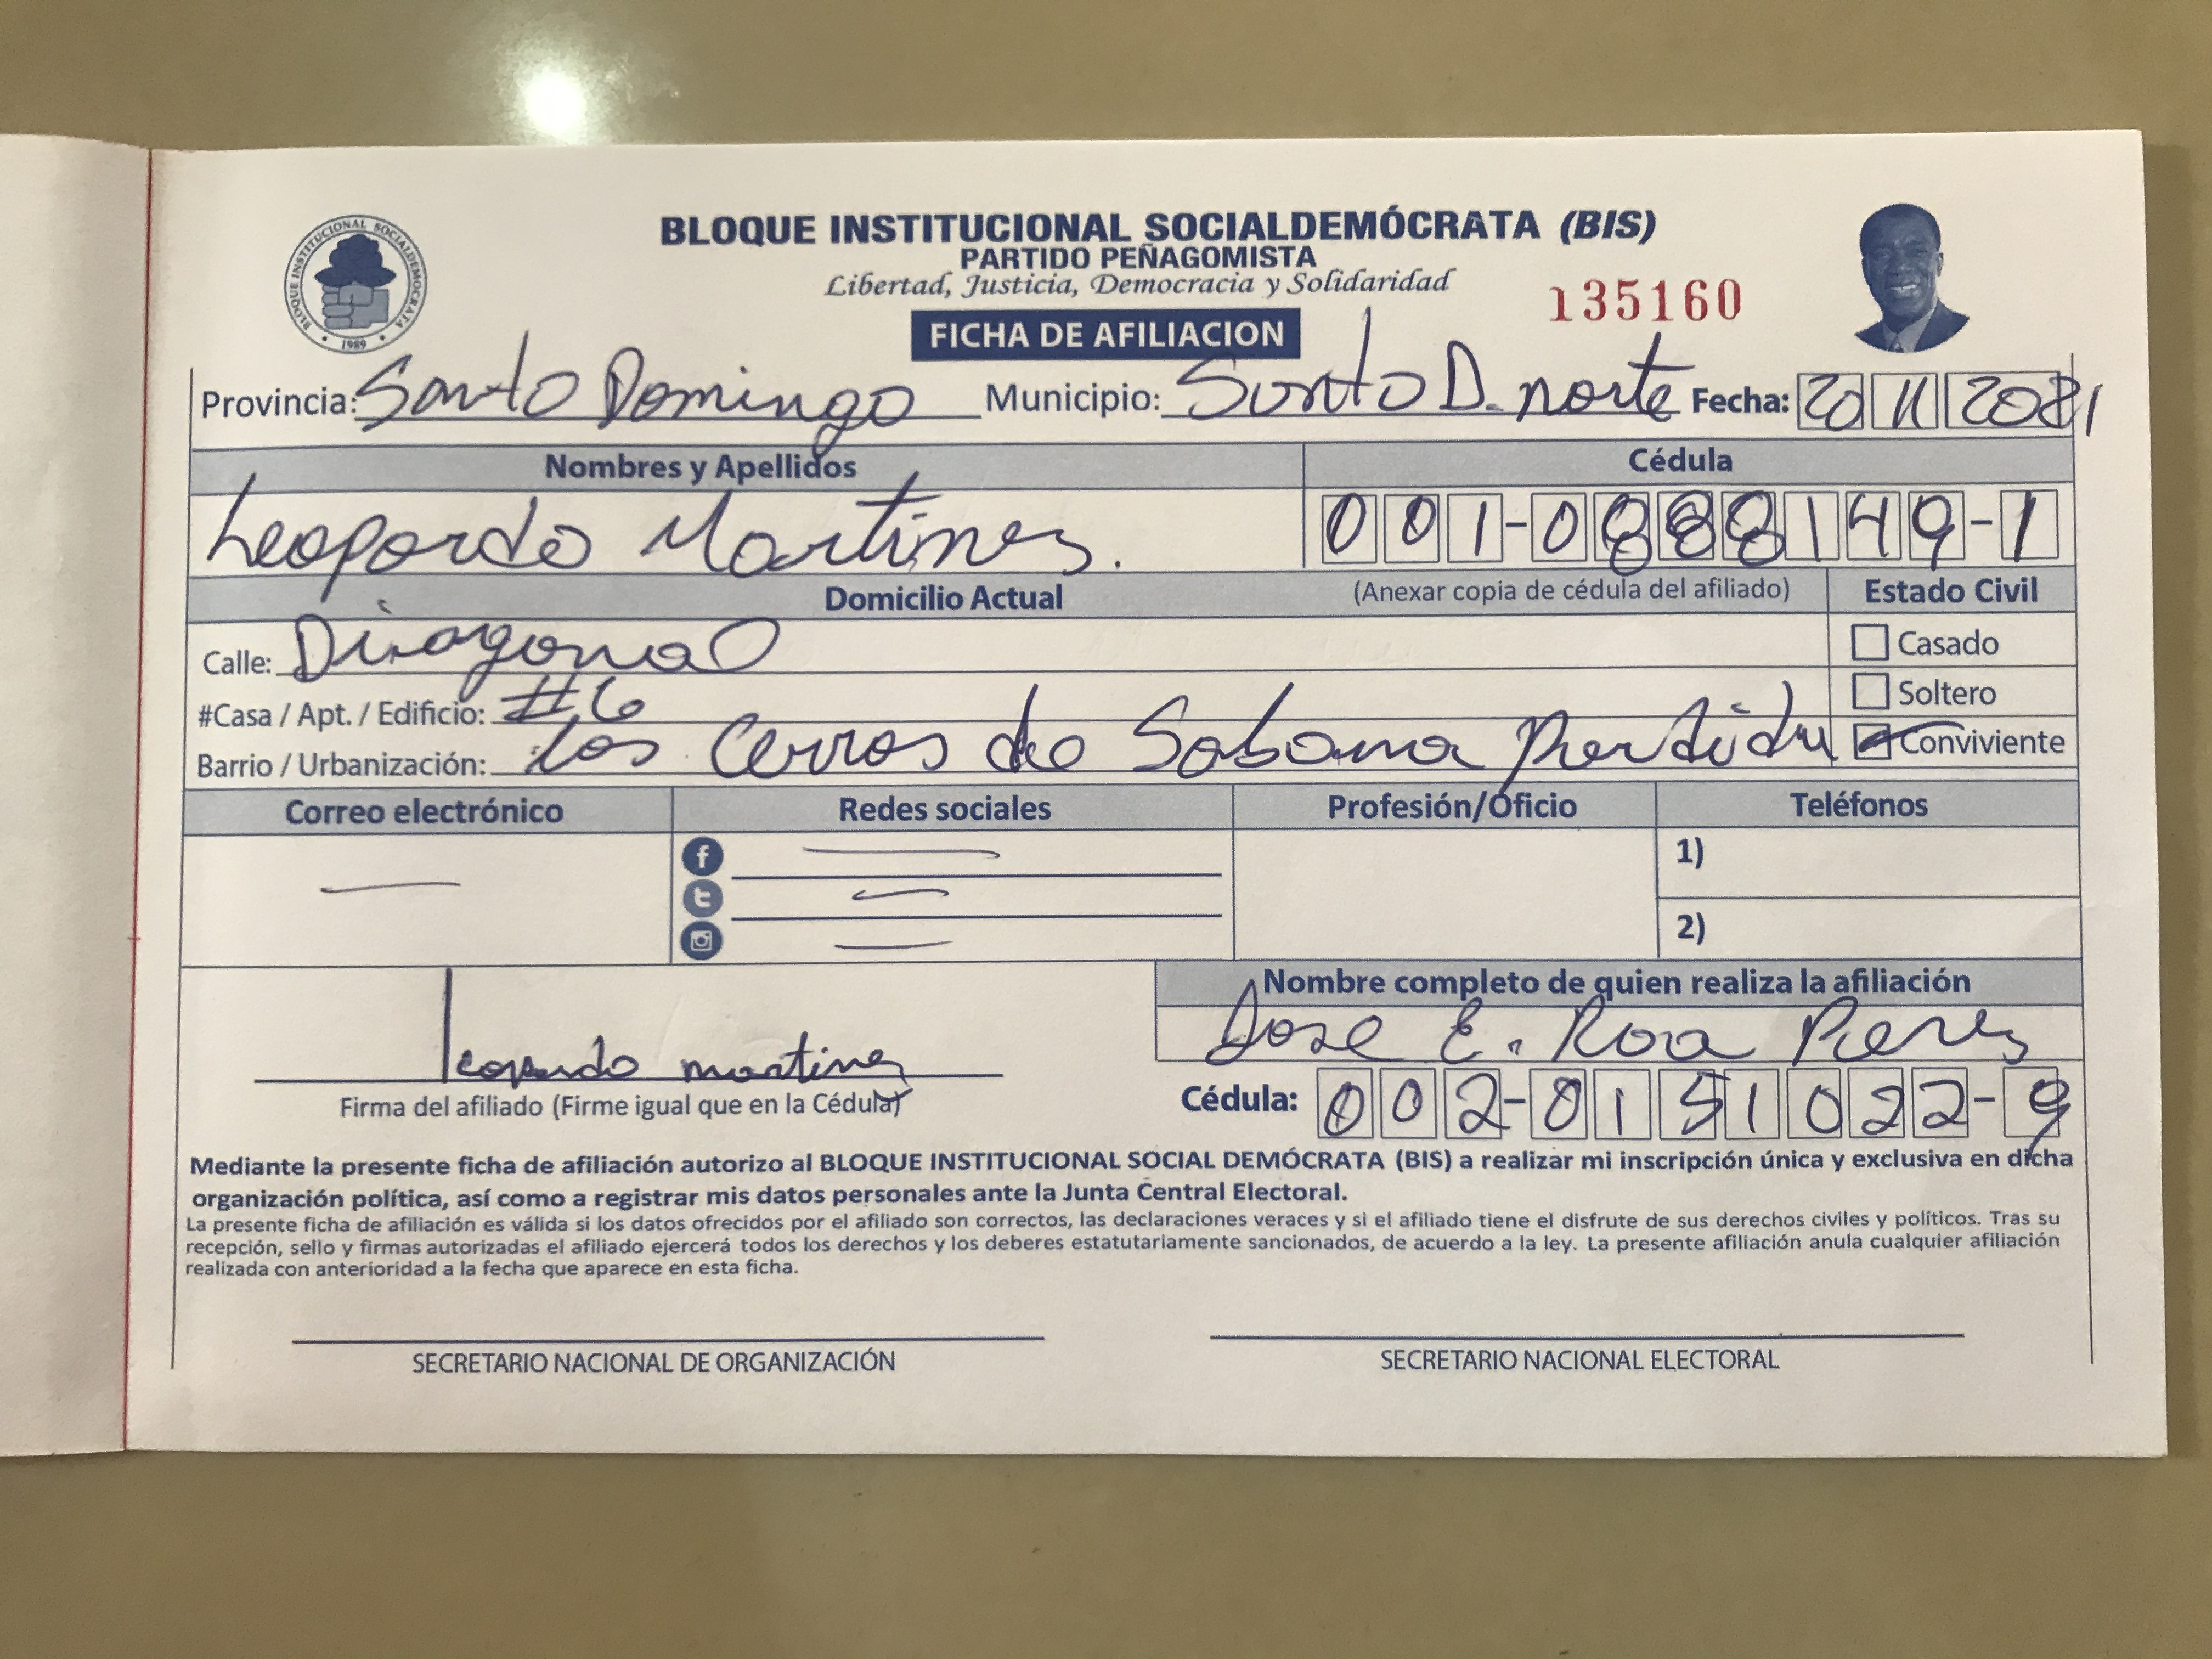 BLOQUE INSTITUCIONAL SOCIALDEMÓCRATA (BIS)
PARTIDO PEÑAGOMISTA
Libertad, Justicia, Democracia y Solidaridad
135160
BLOQUE INSTITUCIONAL SOCIALDEMOCRATA
1989
FICHA DE AFILIACION
Provincia: Santo Domingo Municipio: Santo D. norte Fecha: 20 11 2021
Nombres y Apellidos Cédula
Leopardo Martines. 001-0888149-1
Domicilio Actual (Anexar copia de cédula del afiliado) Estado Civil
Calle: Diagonal Casado
#Casa / Apt. / Edificio: #6 Soltero
Barrio / Urbanización: Los Cerros de Sabana Perdida Conviviente
Correo electrónico Redes sociales Profesión/Oficio Teléfonos
1)
2)
Nombre completo de quien realiza la afiliación
Jose E. Roa Peres
leopardo martinez
Firma del afiliado (Firme igual que en la Cédula) Cédula: 002-0151022-9
Mediante la presente ficha de afiliación autorizo al BLOQUE INSTITUCIONAL SOCIAL DEMÓCRATA (BIS) a realizar mi inscripción única y exclusiva en dicha
organización política, así como a registrar mis datos personales ante la Junta Central Electoral.
La presente ficha de afiliación es válida si los datos ofrecidos por el afiliado son correctos, las declaraciones veraces y si el afiliado tiene el disfrute de sus derechos civiles y políticos. Tras su
recepción, sello y firmas autorizadas el afiliado ejercerá todos los derechos y los deberes estatutariamente sancionados, de acuerdo a la ley. La presente afiliación anula cualquier afiliación
realizada con anterioridad a la fecha que aparece en esta ficha.
SECRETARIO NACIONAL DE ORGANIZACIÓN SECRETARIO NACIONAL ELECTORAL